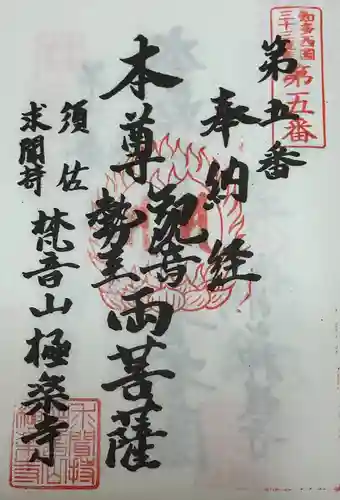 知多西国
三十三所
第五番
第五番
奉納経
本尊
観音
勢至
両菩薩
須佐
求聞持
梵音山極楽寺